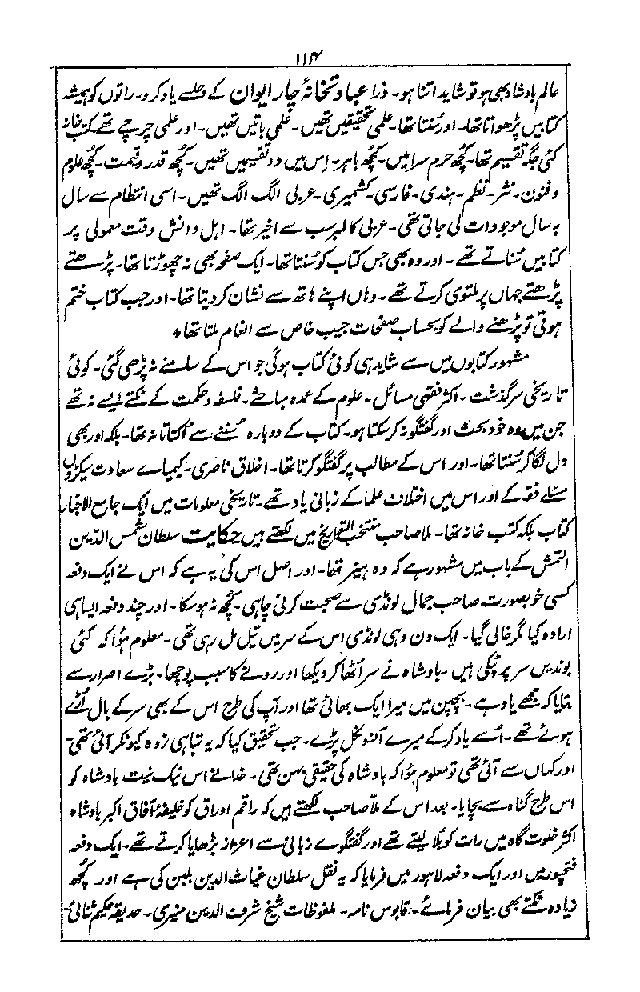 ۱۱۴
عالم بادشاہ بھی ہو تو شاید اتنا ہو۔ ذرا عبادتخانۂ چار ایوان کے جلسے یاد کرو۔ راتوں کو ہمیشہ
کتابیں پڑھواتا تھا۔ اور سُنتا تھا۔ علمی تحقیقیں تھیں۔ علمی باتیں تھیں۔ اور علمی چرچے تھے کتب خانہ
کئی جگہ تقسیم تھا۔ کچھ حرم سرا میں۔ کچھ باہر۔ اس میں دو تقسیمیں تھیں۔ کچھ قدر و قیمت۔ کچھ علوم
و فنون۔ نثر۔ نظم۔ ہندی۔ فارسی۔ کشمیری۔ عربی الگ الگ تھیں۔ اسی انتظام سے سال
بہ سال موجودات لی جاتی تھی۔ عربی کا نمبر سب سے اخیر تھا۔ اہل دانش وقت معمولی پر
کتابیں سُناتے تھے۔ اور وہ بھی جس کتاب کو سُنتا تھا۔ ایک صفحہ بھی نہ چھوڑتا تھا۔ پڑھتے
پڑھتے جہاں پر ملتوی کرتے تھے۔ وہاں اپنے ہاتھ سے نشان کر دیتا تھا۔ اور جب کتاب ختم
ہوتی تو پڑھنے والے کو بحساب صفحات جیب خاص سے انعام ملتا تھا *
مشہور کتابوں میں سے شاید ہی کوئی کتاب ہوگی جو اس کے سامنے نہ پڑھی گئی۔ کوئی
تاریخی سرگذشت۔ اکثر فقہی مسائل۔ علوم کے عمدہ مباحثے۔ فلسفہ و حکمت کے نکتے ایسے نہ تھے
جن میں وہ خود بحث اور گفتگو نہ کر سکتا ہو۔ کتاب کے دوبارہ سُننے سے اُکتاتا نہ تھا۔ بلکہ اور بھی
دل لگا کر سُنتا تھا۔ اور اس کے مطالب پر گفتگو کرتا تھا۔ اخلاق ناصری۔ کیمیاے سعادت سیکڑوں
مسئلے فقہ کے اور اس میں اختلاف علما کے زبانی یاد تھے۔ تاریخی معلومات میں ایک جامع الاخبار
کتاب بلکہ کتب خانہ تھا۔ ملا صاحب منتخب التواریخ میں لکھتے ہیں حکایت سلطان شمس الدین
التمش کے باب میں مشہور ہے کہ وہ ہیز تھا۔ اور اصل اس کی یہ ہے کہ اس نے ایک دفعہ
کسی خوبصورت صاحب جمال لونڈی سے صحبت کرنی چاہی۔ کچھ نہ ہو سکا۔ اور چند دفعہ ایسا ہی
ارادہ کیا مگر خالی گیا۔ ایک دن وہی لونڈی اس کے سر میں تیل مل رہی تھی۔ معلوم ہُوا کہ کئی
بوندیں سر پر ٹپکی ہیں۔ بادشاہ نے سر اُٹھا کر دیکھا اور رونے کا سبب پوچھا۔ بڑے اصرار سے
بتایا کہ مجھے یاد ہے۔ بچپن میں میرا ایک بھائی تھا اور آپ کی طرح اس کے بھی سر کے بال اُڑے
ہوئے تھے۔ اُسے یاد کرکے میرے آنسو نکل پڑے۔ جب تحقیق کیا کہ یہ تباہی زدہ کیونکر آئی تھی۔
اور کہاں سے آئی تھی تو معلوم ہُوا کہ بادشاہ کی حقیقی بہن تھی۔ خدا نے اس نیک نیت بادشاہ کو
اس طرح گناہ سے بچایا۔ بعد اس کے ملّا صاحب لکھتے ہیں کہ راقم اوراق کو خلیفۂ آفاق اکبر بادشاہ
اکثر خلوت گاہ میں رات کو بُلا لیتے تھے اور گفتگوے زبانی سے اعزاز بڑھایا کرتے تھے۔ ایک دفعہ
فتحپور میں اور ایک دفعہ لاہور میں فرمایا کہ یہ نقل سلطان غیاث الدین بلبن کی ہے اور کچھ
زیادہ نکتے بھی بیان فرمائے۔ قابوس نامہ۔ ملفوظات شیخ شرف الدین منیری۔ حدیقہ حکیم سنائی۔